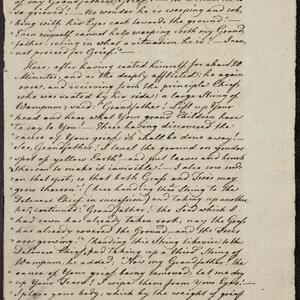 of my Grandfather,
so grieved! No wonder he is weeping and sob,,
bing with his Eyes cast towards the ground! –
Even myself cannot help weeping with my Grand,,
father, seeing in what a situation he is! – I can,
not proceed for Grief! –
Here, after having seated himself for about 20
Minutes, and as the deeply afflicted; he again
rose, and receiving from the principle Chief,
who was seated by his side, a large String of
Wampum; said: "Grandfather! Lift up Your
head and hear what Your grand Children have
to say to You! – These having discovered the
cause of Your grief, it shall be done away! –
See, Grandfather! I level the ground on yonder
spot of yellow Earth, and put leaves and brush
thereon to make it invisible! – I also sow seeds
on that spot, so that both Grass and Trees may
grow thereon! (here handing the String to the
Delaware Chief in succession) and taking up another,
he continued: Grandfather! the Seed which I
had sown has already taken root; nay, the Grass
has already covered the Ground, – and the Trees
are growing! (handing this String likewise to the
Delaware Chief, and taking up a third String of
Wampum, he added: Now my Grandfather, the
cause of Your grief being removed, Let me dry
up Your Tears! I wipe them from Your Eyes!
I place Your body, which by the weight of grief